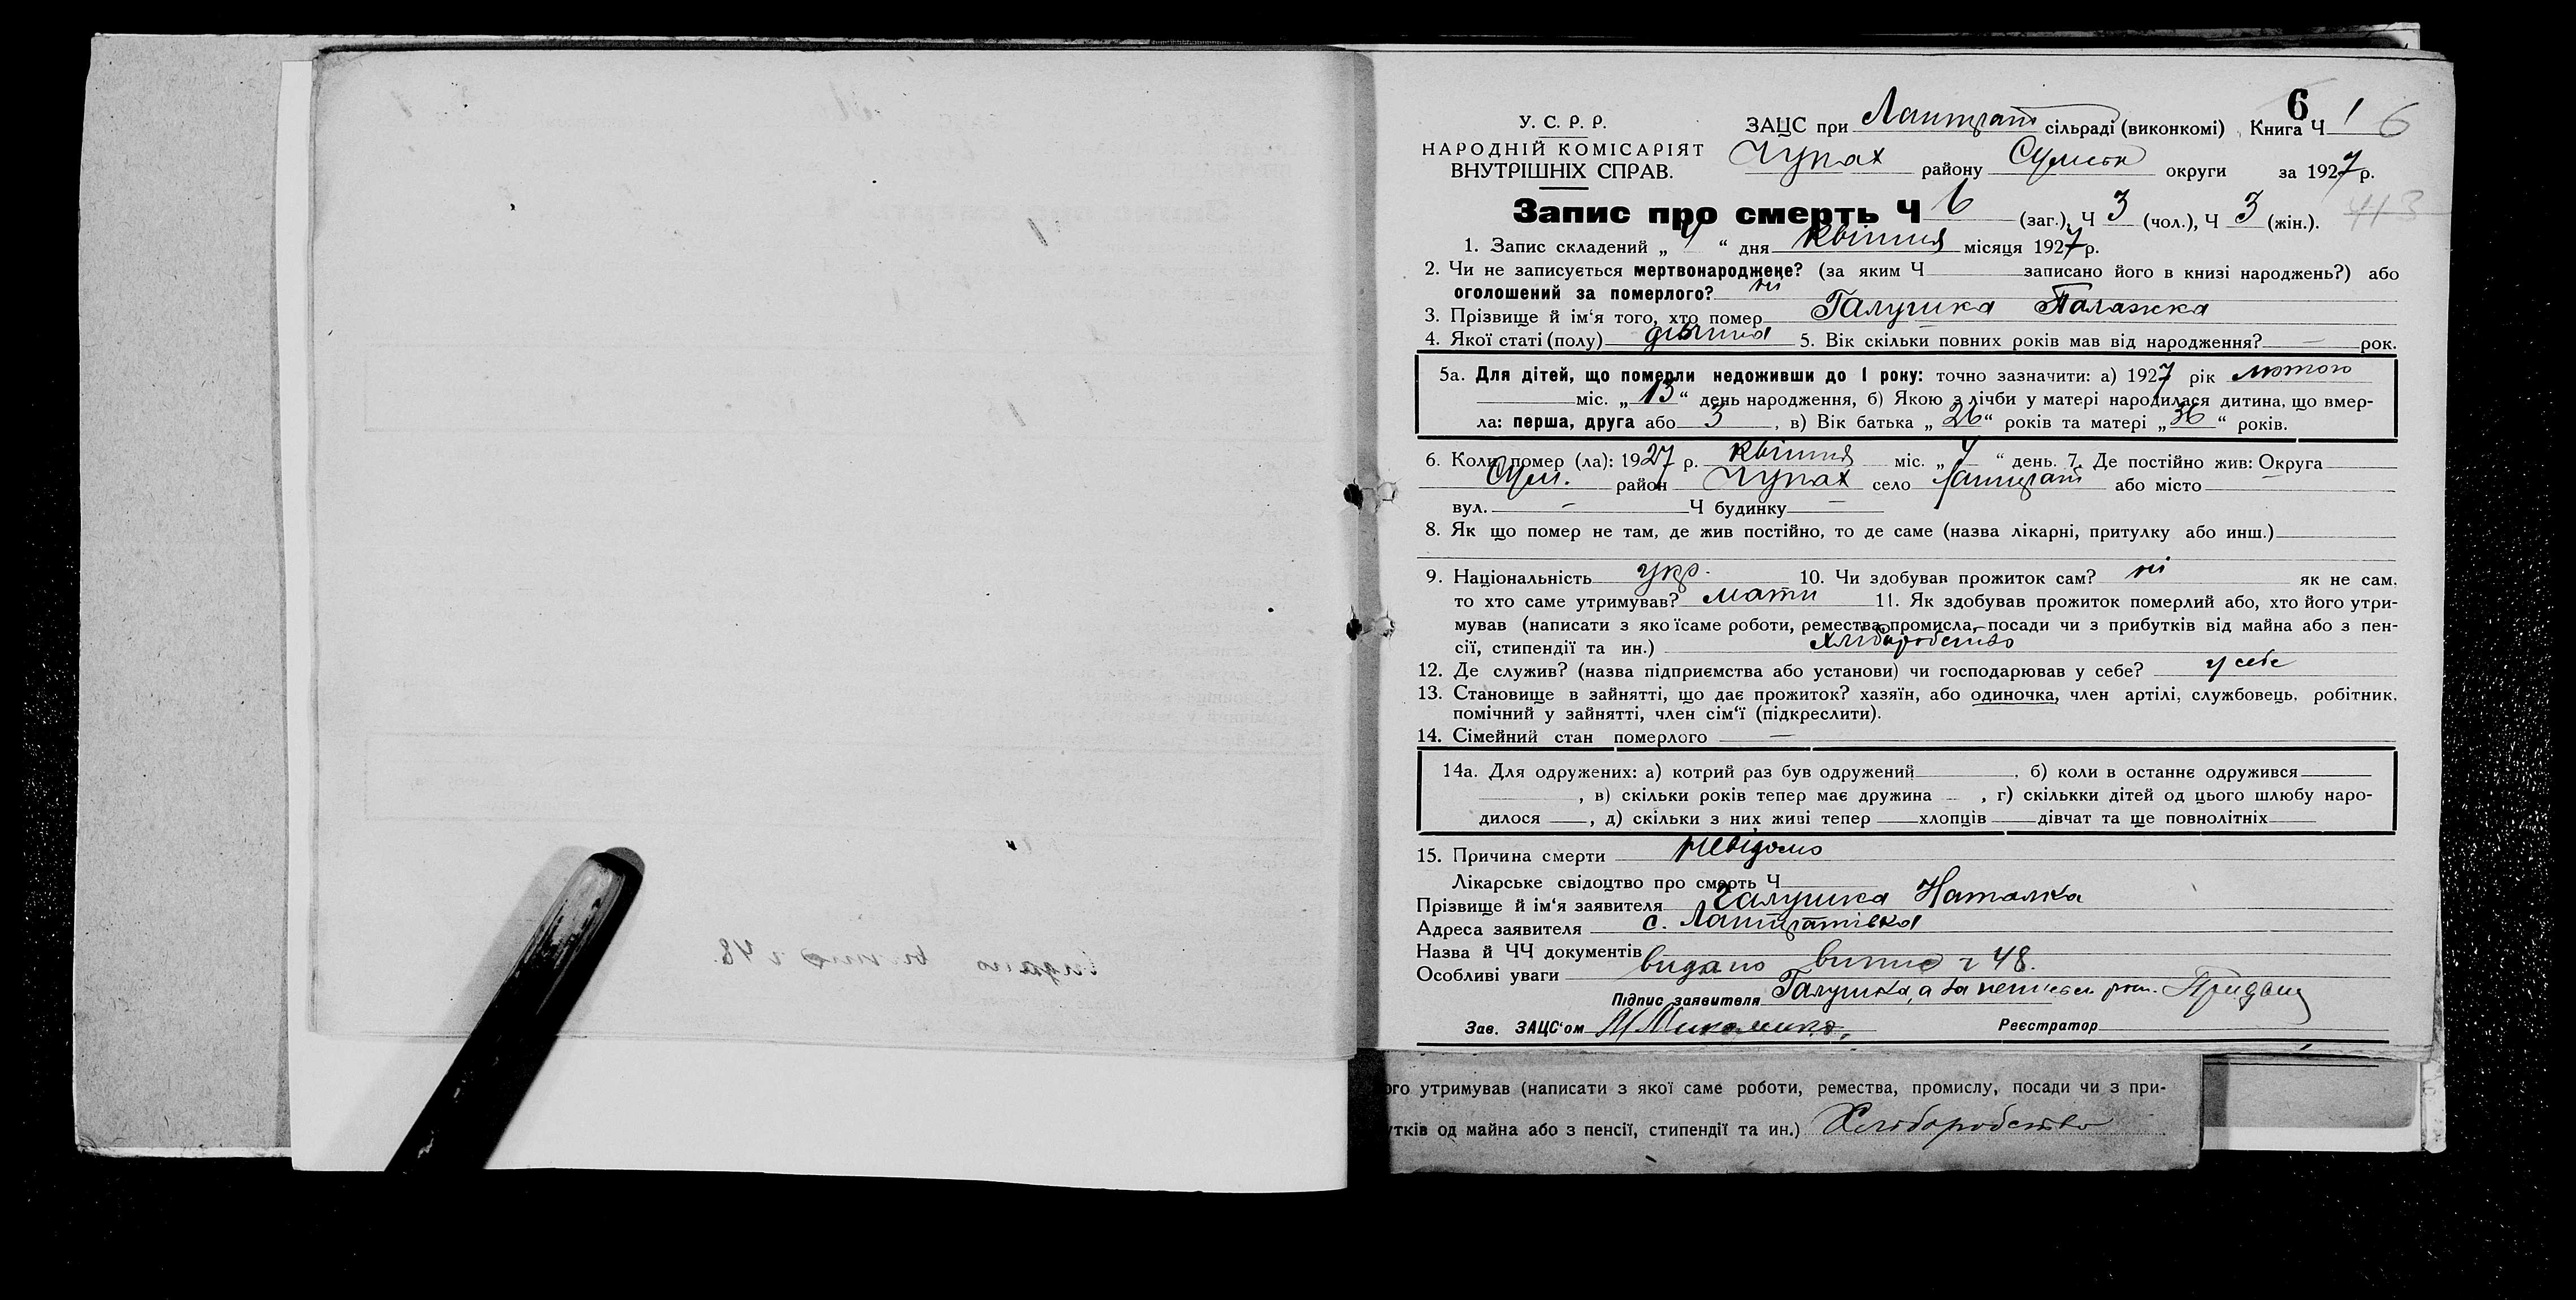 6
У. С. Р. Р. ЗАЦС при Лантрат сільраді (виконкомі) Книга Ч 1 6
НАРОДНІЙ КОМІСАРІЯТ
ВНУТРІШНІХ СПРАВ. Чупах району Сумськ округи за 1927 р.
413
Запис про смерть Ч 6 (заг.), Ч 3 (чол.), Ч 3 (жін.).
1. Запис складений „ 4 “ дня квітня місяця 1927 р.
2. Чи не записується мертвонароджене? (за яким Ч записано його в книзі народжень?) або
оголошений за померлого? ні
3. Прізвище й ім‘я того, хто помер Галушка Палажка
4. Якої статі (полу) 5. Вік скільки повних років мав від народження? — рок.
5а. Для дітей, що померли недоживши до 1 року: точно зазначити: а) 1927 рік лютого
міс. „ 13 “ день народження, б) Якою з лічби у матері народилася дитина, що вмер-
ла: перша, друга або 3 , в) Вік батька „ 26 “ років та матері „ 36 “ років.
6. Коли помер (ла): 1927 р. квітня міс. „ 4 “ день. 7. Де постійно жив: Округа
Сум. район Чупах село Лантрат або місто —
вул. — Ч будинку —
8. Як що помер не там, де жив постійно, то де саме (назва лікарні, притулку або инш.)
9. Національність укр. 10. Чи здобував прожиток сам? ні як не сам.
то хто саме утримував? мати 11. Як здобував прожиток померлий або, хто його утри-
мував (написати з яко їсаме роботи, ремества, промисла, посади чи з прибутків від майна або з пен-
сії, стипендії та ин.) хліборобство
12. Де служив? (назва підприємства або установи) чи господарював у себе? у себе
13. Становище в зайнятті, що дає прожиток? хазяїн, або одиночка, член артілі, службовець, робітник.
помічний у зайнятті, член сім‘ї (підкреслити).
14. Сімейний стан померлого —
14а. Для одружених: а) котрий раз був одружений , б) коли в останнє одружився
, в) скільки років тепер має дружина , г) скількки дітей од цього шлюбу наро-
дилося , д) скільки з них живі тепер хлопців дівчат та ще повнолітніх
15. Причина смерти невідомо
Лікарське свідоцтво про смерть Ч
Прізвище й ім‘я заявителя Галушка Наталка
Адреса заявителя с. Лантратівка
Назва й ЧЧ документів
Особливі уваги видано випис ч 48.
Підпис заявителя Галушка, а за неписьм розп.
Зав. ЗАЦС‘ом Реєстратор
ого утримував (написати з якої саме роботи, ремества, промислу, посади чи з при-
утків од майна або з пенсії, стипендії та ин.) Хліборобство